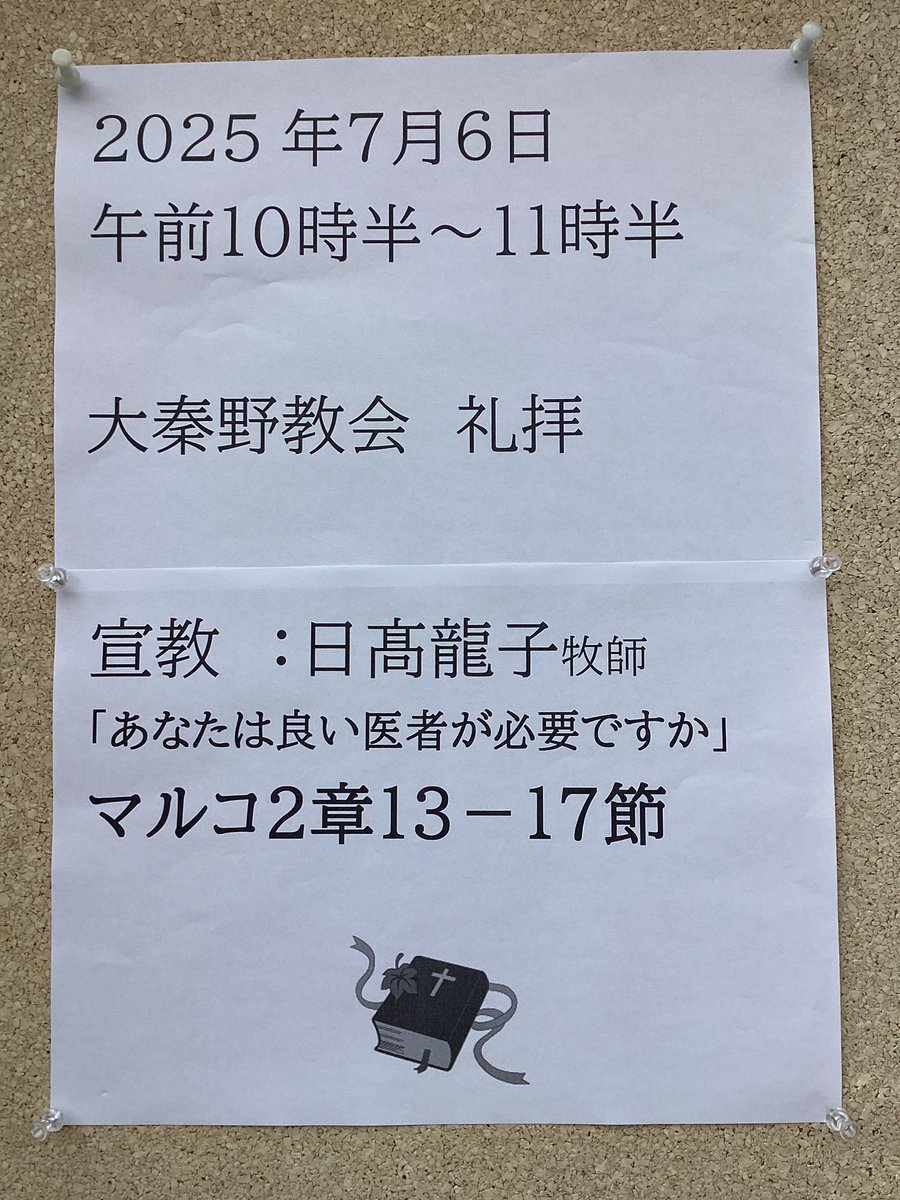 2025年7月6日
午前10時半～11時半
大秦野教会 礼拝
宣教 ：日髙龍子牧師
「あなたは良い医者が必要ですか」
マルコ2章13－17節